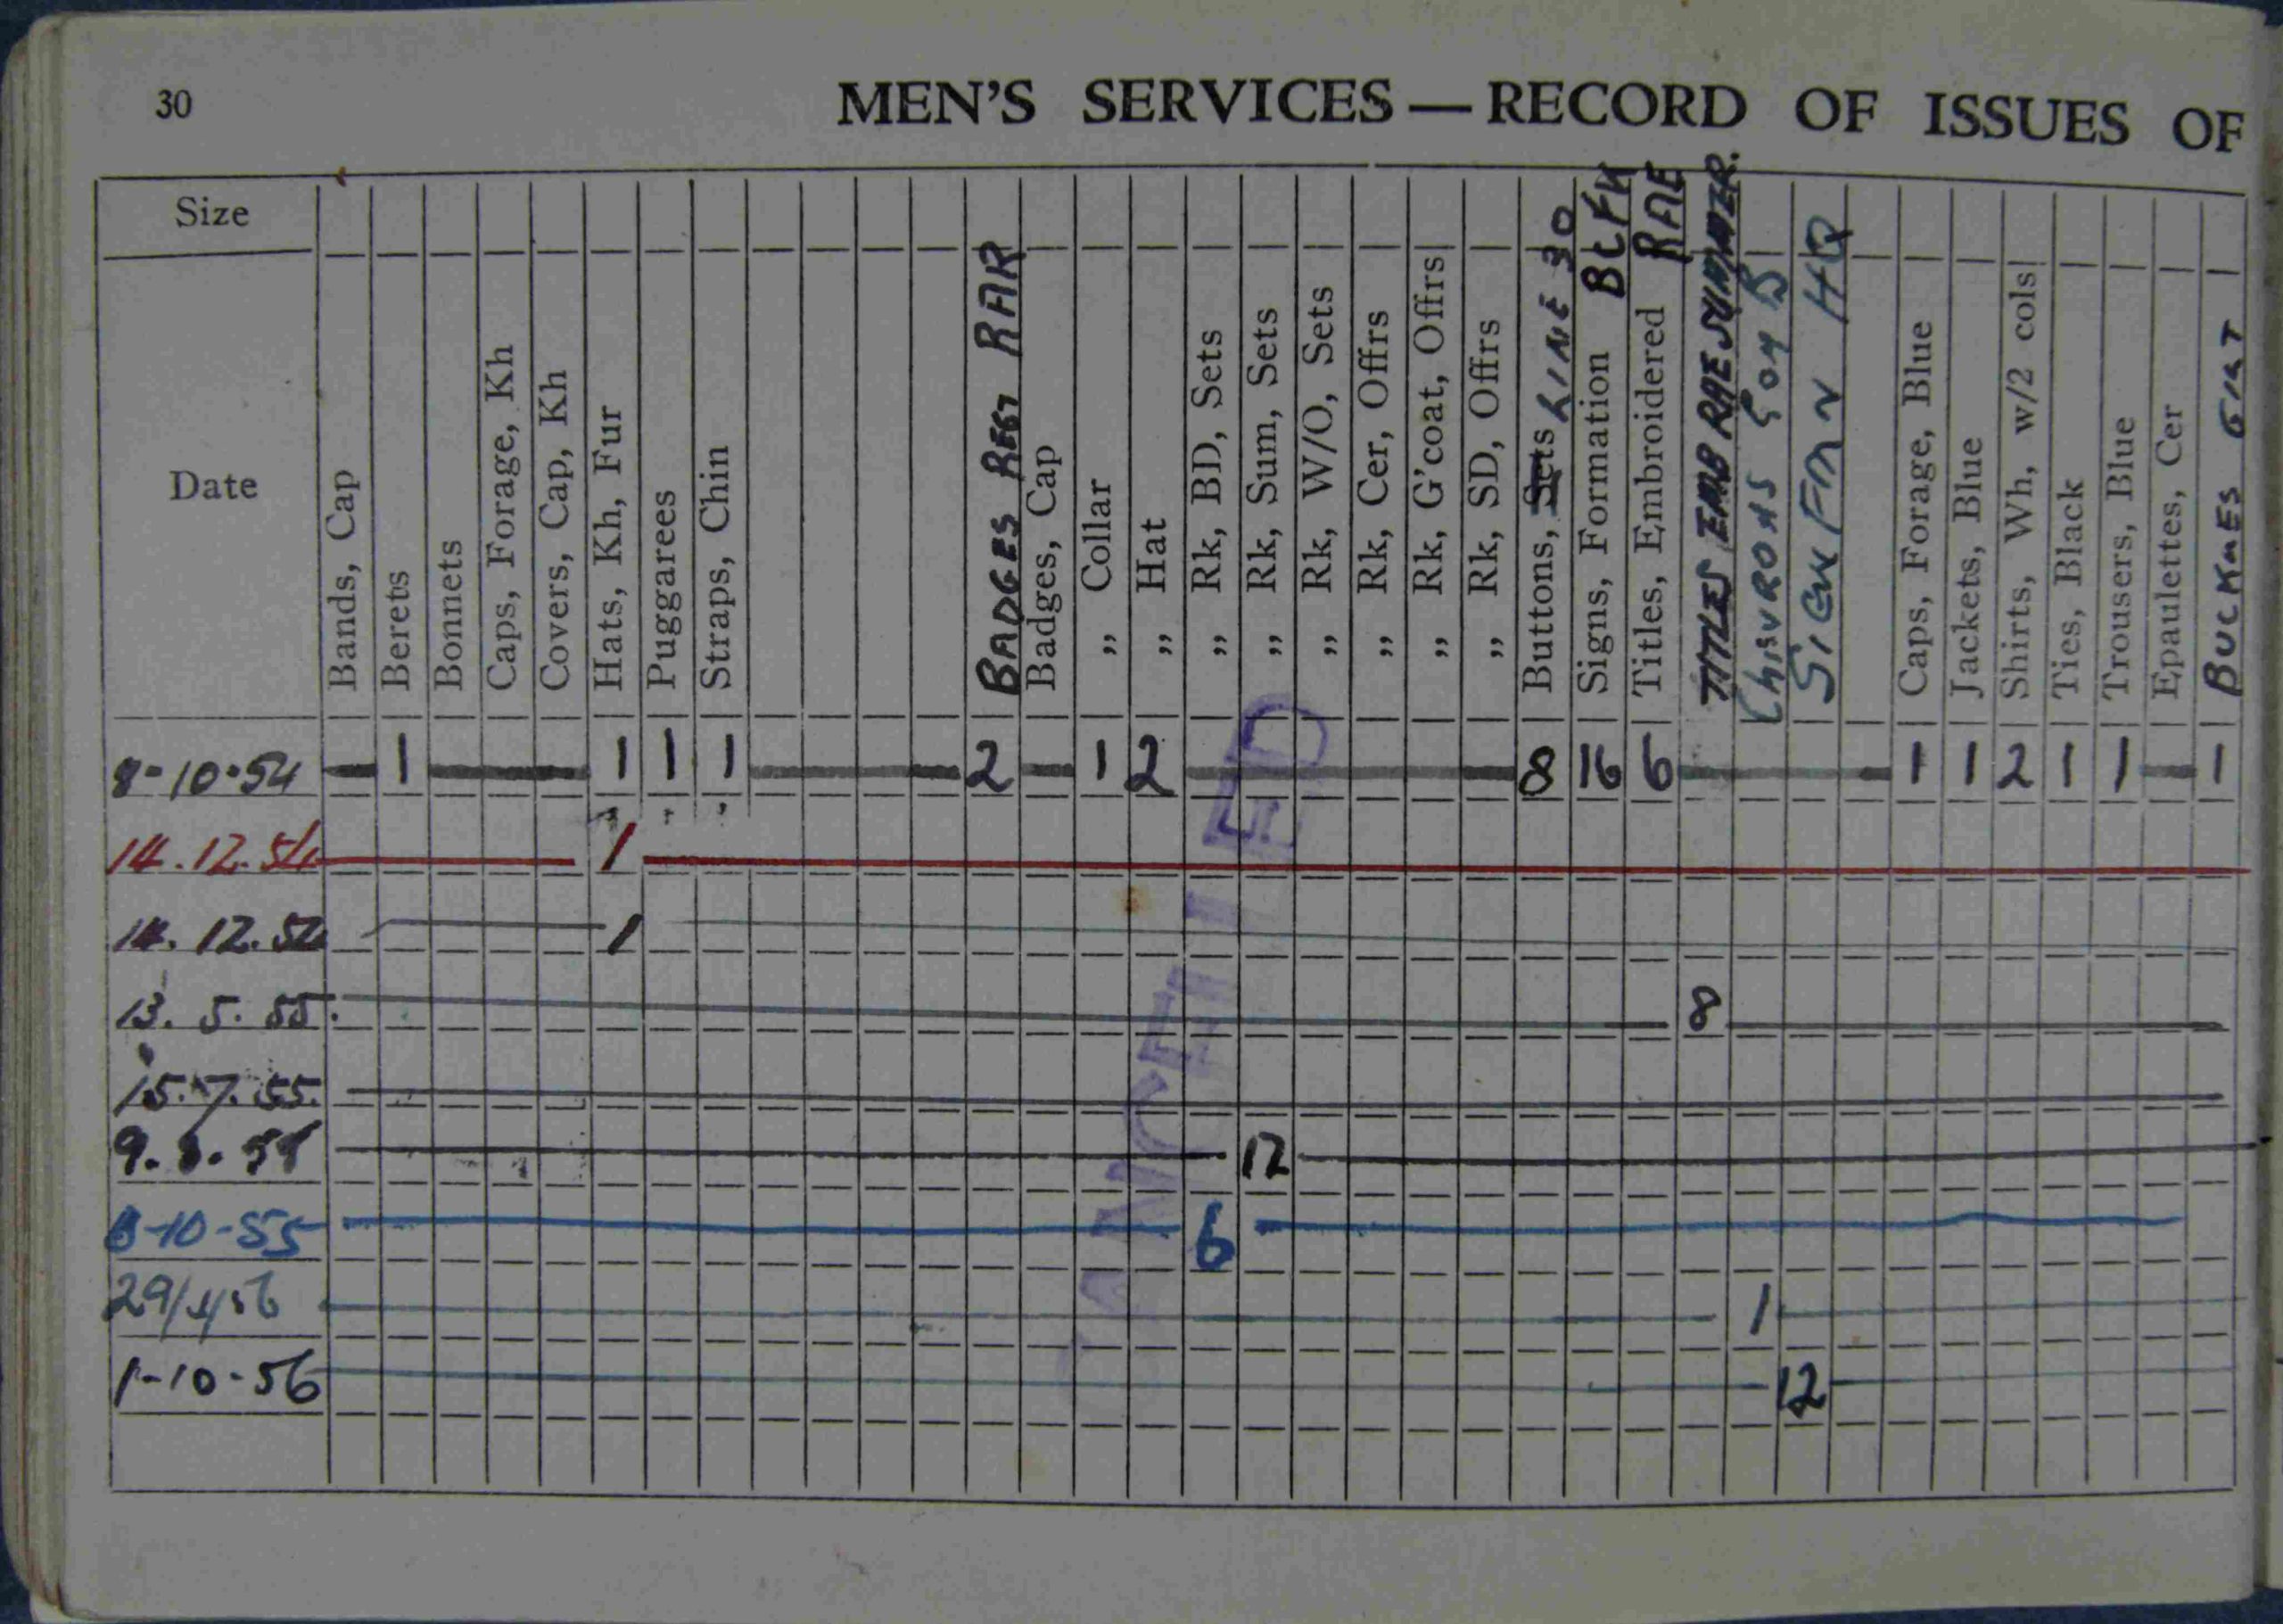 30
MEN'S SERVICES — RECORD OF ISSUES OF
Size
Date
Bands, Cap
Berets
Bonnets
Caps, Forage, Kh
Covers, Cap, Kh
Hats, Kh, Fur
Puggarees
Straps, Chin
BADGES REGT RAR
Badges, Cap
„ Collar
„ Hat
„ Rk, BD, Sets
„ Rk, Sum, Sets
„ Rk, W/O, Sets
„ Rk, Cer, Offrs
„ Rk, G'coat, Offrs
„ Rk, SD, Offrs
Buttons, Sets LINE 30
Signs, Formation
Titles, Embroidered RAE
TITLES EMB RAE SUMMER.
SIGN FMN HQ
Caps, Forage, Blue
Jackets, Blue
Shirts, Wh, w/2 cols
Ties, Black
Trousers, Blue
Epaulettes, Cer
BUCKLES GILT
8-10-54 — 1 — 1 1 1 — 2 — 1 2 — 8 16 6 — 1 1 2 1 1 — 1
14.12.54 — 1 —
14.12.54 — 1 —
13.5.55. — 8 —
15.7.55. —
— 12 —
-10-55 — 6 —
— 1 —
1-10-56 — 12 —
CANCELLED